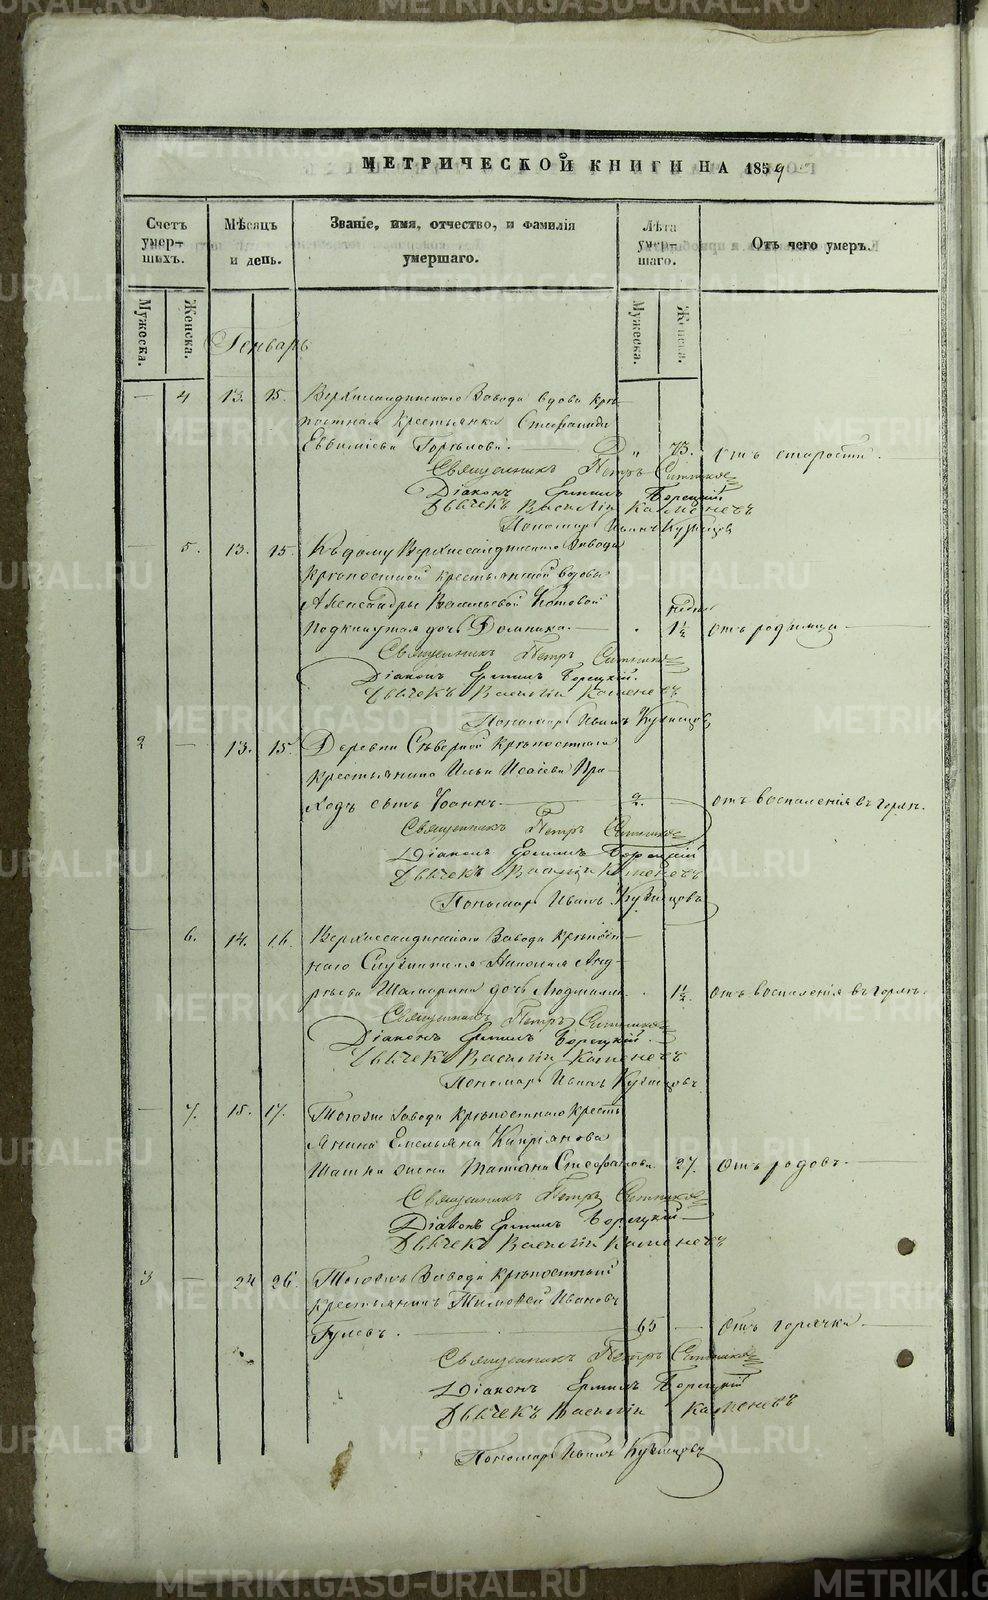 МЕТРИЧЕСКОЙ КНИГИ НА 1859
Счетъ умер-шихъ.
Мѣсяцъ и день.
Званіе, имя, отчество, и фамилія умершаго.
Лѣта умер-шаго.
Отъ чего умеръ.
Мужеска.
Женска.
Мужеска.
Женска.
Генварь
— 4 13. 15. Верхисандинскаго Завода вдова крѣ-
постная крестьянка Стефанида
Евфиміева — „ 73. отъ старости. —
Священникъ Петръ
Діаконъ Ермилъ Борецкій
Дьячекъ Василій Каменевъ
Пономарь Иванъ Кузнецовъ
— 5. 13. 15. Къ дому Завода
Крѣпостной крестьянской вдовы
Александры Васильевой
недѣль
подкинутая дочь Домника. — . 1½ отъ родимца —
Священникъ Петръ
Діаконъ Ермилъ Борецкій.
Дьячекъ Василій Каменевъ
Пономарь Иванъ Кузнецовъ
2 — 13. 15. Деревни Сѣверной Крѣпостнаго
крестьянина Ильи Исаіева При-
ходъ сынъ Іоаннъ. — 2. отъ воспаленія въ горлѣ.
Священникъ Петръ
Діаконъ Ермилъ Борецкій
Дьячекъ Василій Каменевъ
Пономарь Иванъ Кузнецовъ
— 6. 14. 16. Завода крѣпост-
наго Служителя Николая Анд-
рѣева Шамарина дочь Людмилла. . 1½. отъ воспаленія въ горлѣ.
Священникъ Петръ
Діаконъ Ермилъ Борецкій.
Дьячекъ Василій Каменевъ
Пономарь Иванъ Кузнецовъ
— 7. 15. 17. Тогожъ Завода крѣпостнаго Кресть-
янина Емельяна Кипріянова
жена Татіана Стефанова 27. Отъ родовъ. —
Священникъ Петръ
Діаконъ Ермилъ Борецкій —
Дьячекъ Василій Каменевъ
3 — 24 26. Тогожъ Завода Крѣпостный
крестьянинъ Тимофей Ивановъ
Гулевъ. — 65 — Отъ горячки —
Священникъ Петръ
Діаконъ Ермилъ Борецкій
Дьячекъ Василій Каменевъ
Пономарь Иванъ Кузнецовъ
METRIKI.GASO-URAL.RU